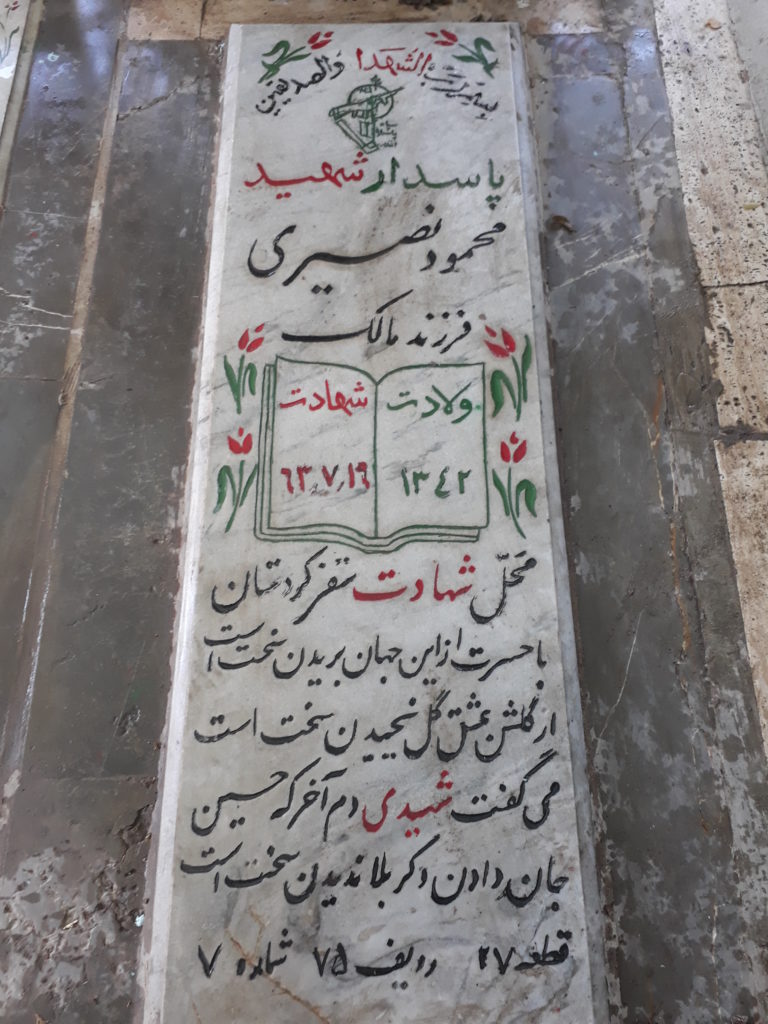 بسم رب الشهدا والصدیقین
پاسدار شهید
محمود نصیری
فرزند مالک
ولادت شهادت
۱۳۴۲ ۶۳٫۷٫۱۹
محلّ شهادت سقز کردستان
با حسرت از این جهان بریدن سخت است
از گلشن عشق گل نچیدن سخت است
می گفت شهیدی دم آخر که حسین
جان دادن و کربلا ندیدن سخت است
قطعه ۲۷ ردیف ۷۵ شماره ۷